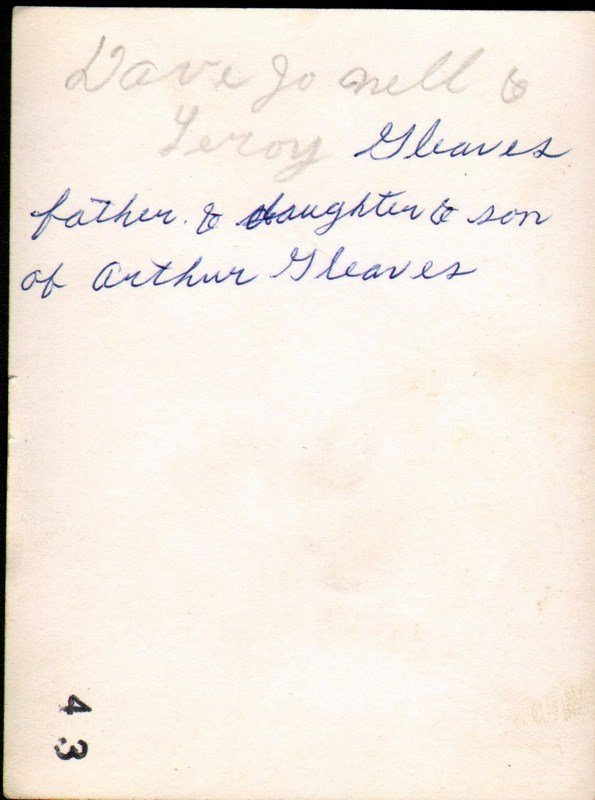 Dave Jo nell &
Leroy Gleaves
father. & daughter & son
of Arthur Gleaves
43